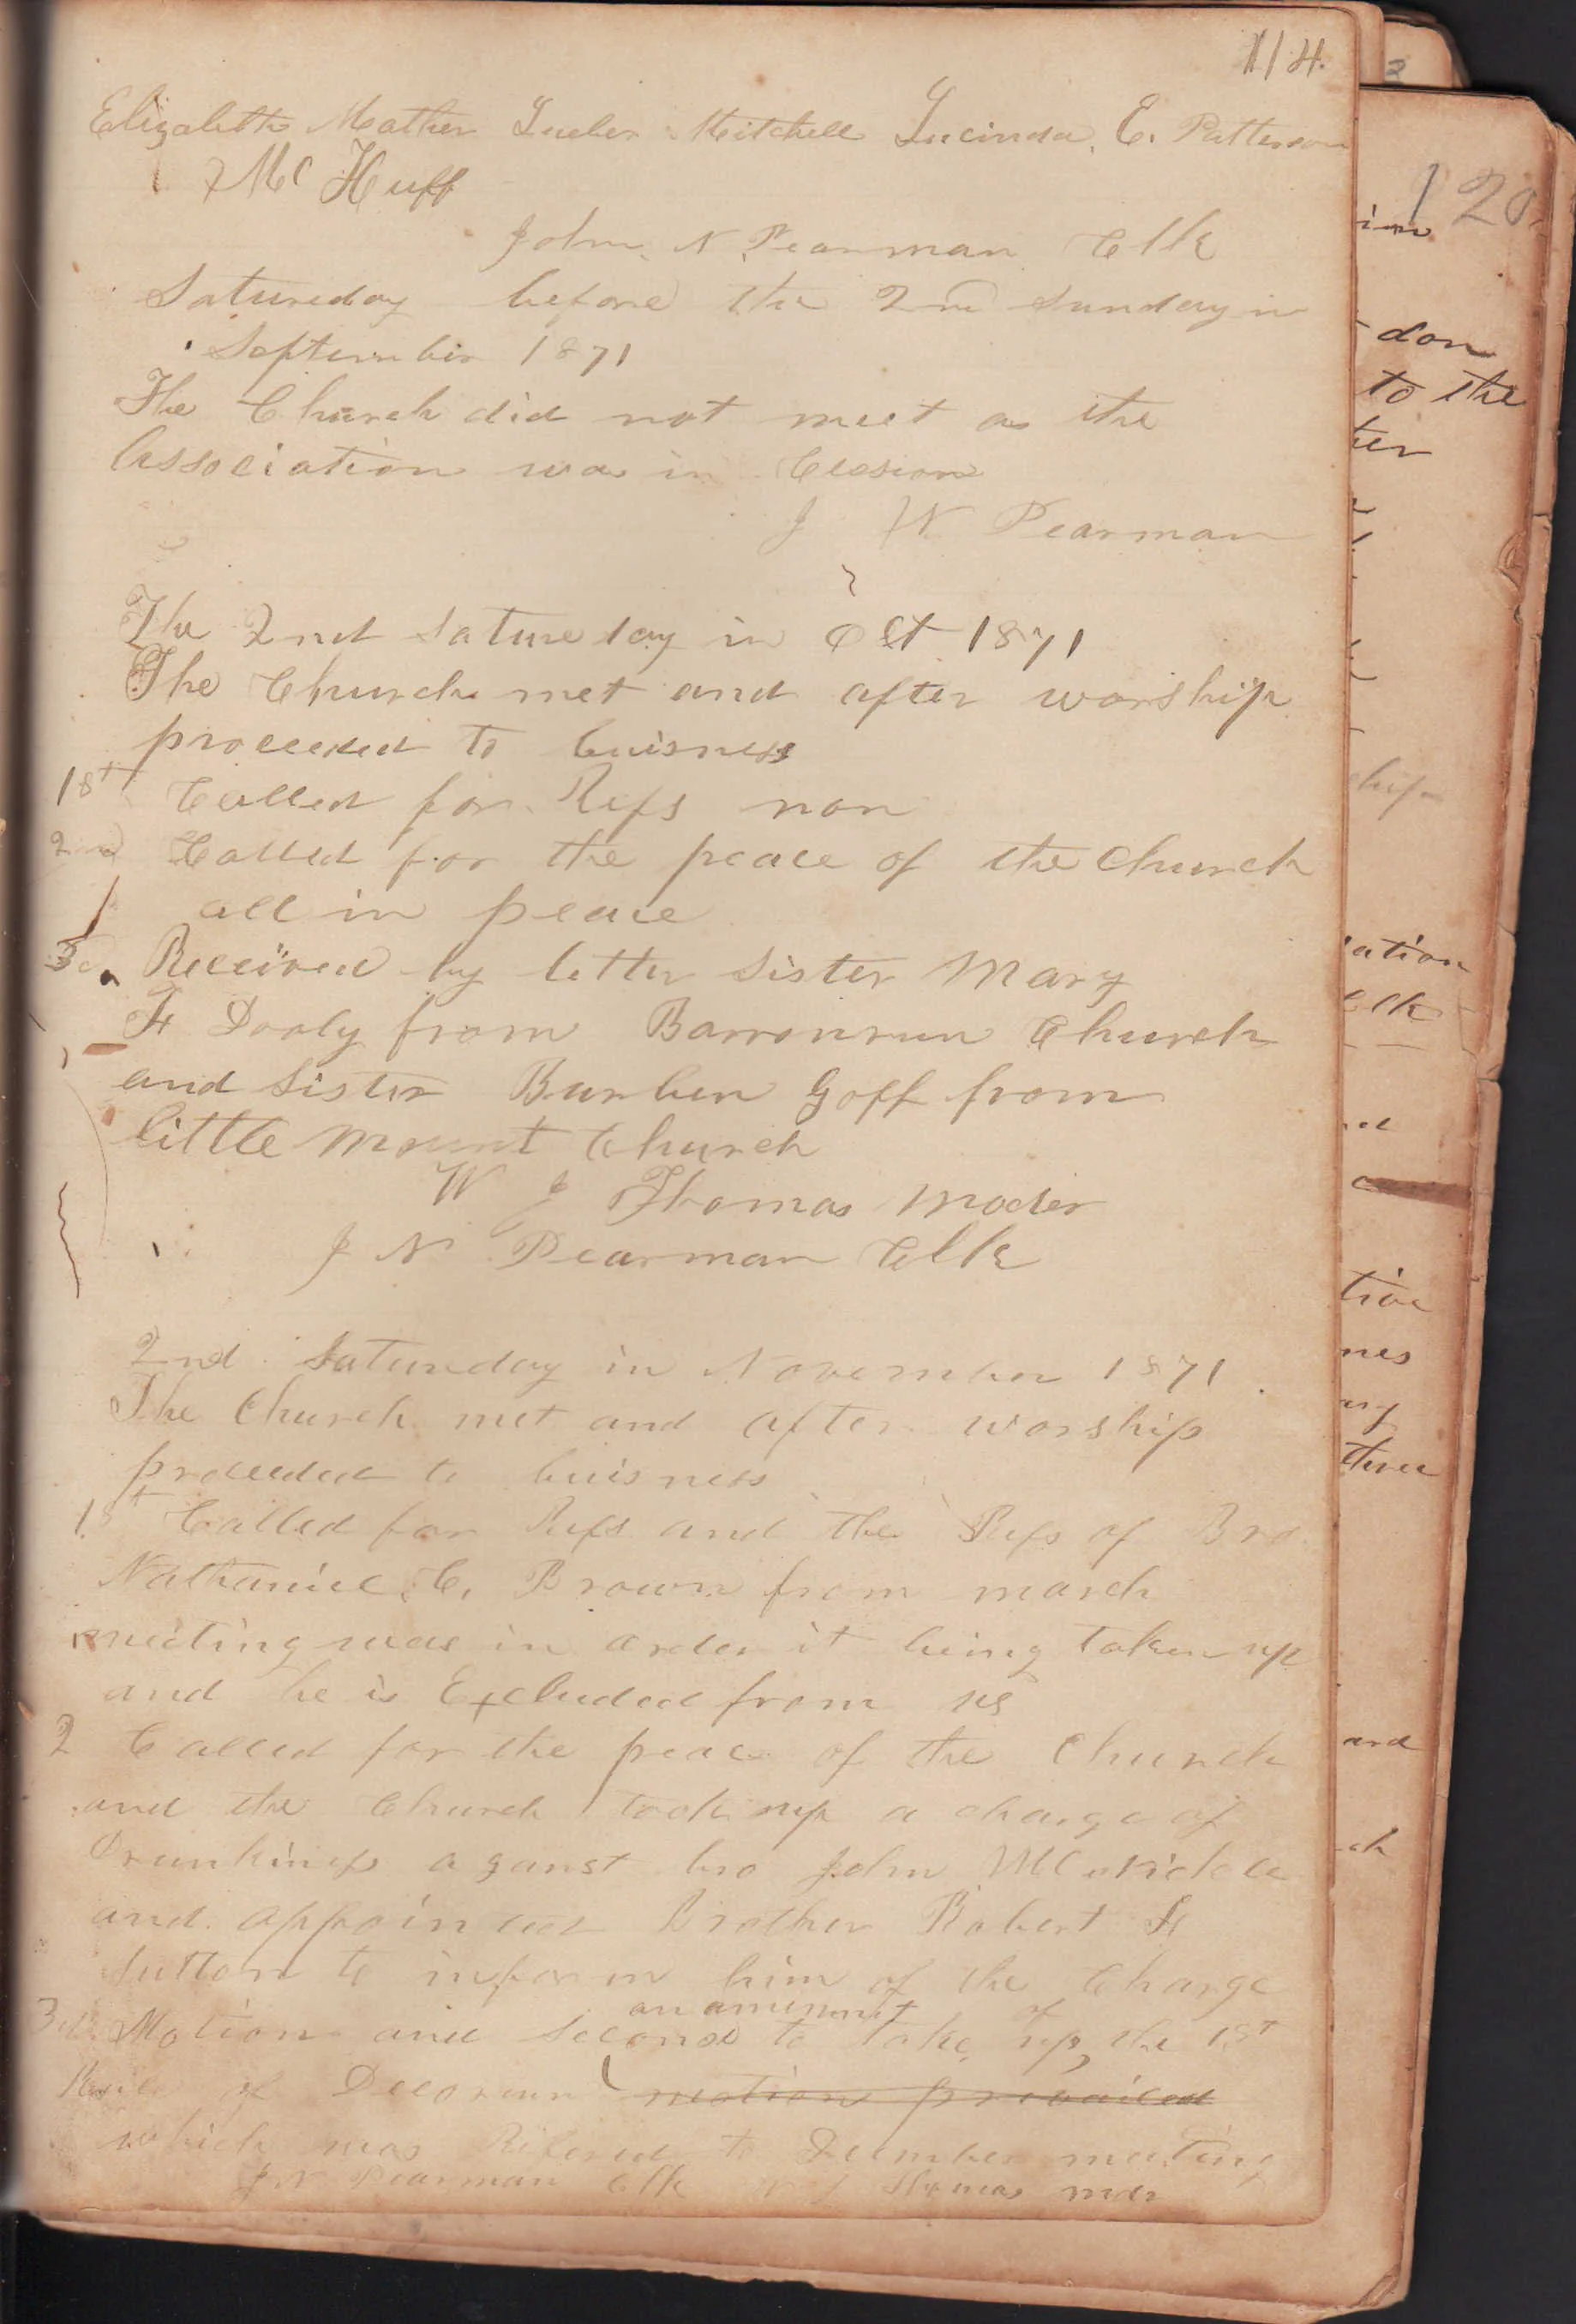 114.
Elizabeth Mather Mitchell Lucinda. E. Patterson
& Mc Huff
John. N Pearman Clk
Satureday before the 2nd Sunday in
September 1871
The Church did not meet as the
Association was in Cession
J N Pearman
The 2nd Satureday in Oct 1871
The Church met and after worship
proceeded to buisness
1st Called for Refs non
2nd Called for the peace of the Church
all in peace
3d Received by letter Sister Mary
F Dooly from Barronrun Church
and Sister Burben Goff from
little Mount Church
W J Thomas Moder
J N Pearman Clk
2nd Saturday in November 1871
The Church met and after worship
proceeded to buisness
1st Called for Refs and the Refs of Bro
Nathaniel C. Brown from march
meeting was in order it being taken up
and he is Excluded from us
2 Called for the peace of the Church
and the Church took up a charge of
Drunkiness aganst bro John
and appointed Brother Robert F
Sutton to inform him of the Charge
an amenment of
3d Motion and Second to take up, the 1st
Rule of Decorum motion prevailed
which was Refered to December meeting
J N Pearman Clk W J Thomas mdr
120
im
don
to the
ter
ship
ation
Clk
tive
nes
three
and
ch